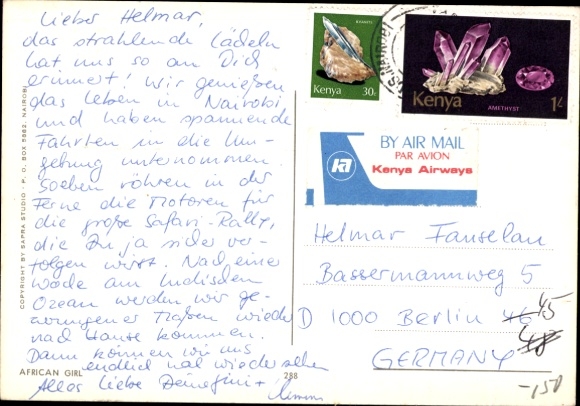 Lieber Helmar,
das strahlende Lächeln
hat uns so an Dich
erinnert! Wir genießen
das Leben in Nairobi
und haben spannende
Fahrten in die Um-
gebung unternommen.
Soeben röhren in der
Ferne die Motoren für
die große Safari-Rallye,
die Du ja sicher ver-
folgen wirst. Nach einer
Woche am Indischen
Ozean werden wir ge-
zwungener Maßen wieder
nach Hause kommen.
Dann können wir uns
endlich mal wieder sehen
Alles Liebe Deine +
COPYRIGHT BY SAPRA STUDIO - P. O. BOX 5882, NAIROBI
AFRICAN GIRL
288
KYANITE
Kenya 30c
Kenya
AMETHYST
1/-
BY AIR MAIL
PAR AVION
Kenya Airways
Helmar Fanselau
Bassermannweg 5
D 1000 Berlin 46 45
48
GERMANY
-150